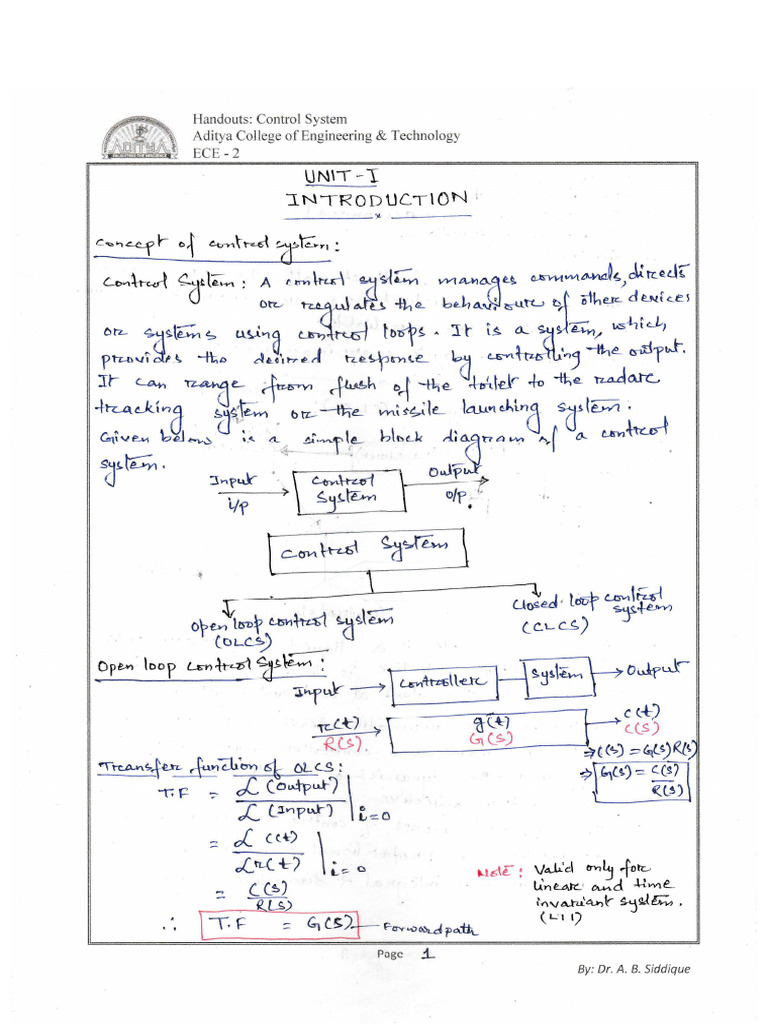 Handouts: Control System
Aditya College of Engineering & Technology
ECE - 2
ADITYA
UNIT-I
INTRODUCTION
Concept of control system:
Control System: A control system manages commands, directs
or regulates the behaviour of other devices
or systems using control loops. It is a system, which
provides the desired response by controlling the output.
It can range from flush of the toilet to the radar
tracking system or the missile launching system.
Given below is a simple block diagram of a control
system.
Input Control Output
i/p System o/p.
Control System
Open loop control system
(OLCS)
Closed loop control
system
(CLCS)
Open loop Control System:
Input → Controller → System → Output
r(t) g(t) c(t)
R(s) G(s) C(s)
⇒ C(s) = G(s) R(s)
⇒ G(s) = C(s)/R(s)
Transfer function of OLCS:
T.F = ℒ (Output) / ℒ (Input) | i=0
= ℒ c(t) / ℒ r(t) | i=0
= C(s) / R(s)
∴ T.F = G(s) — Forwardpath
Note: Valid only for
linear and time
invariant system.
(LTI)
Page 1
By: Dr. A. B. Siddique